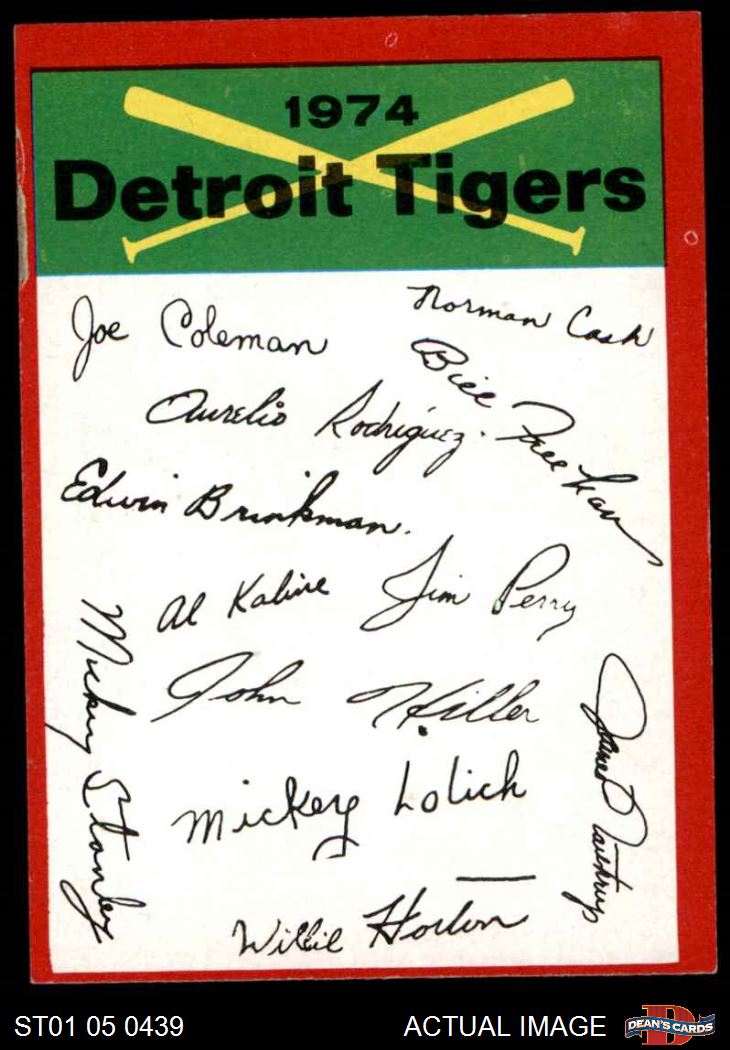 1974
Detroit Tigers
Joe Coleman
Norman Cash
Bill Freehan
Aurelio Rodriguez.
Edwin Brinkman.
Al Kaline
Jim Perry
Mickey Stanley
John Hiller
James Northrup
Mickey Lolich
Willie Horton
ST01 05 0439
ACTUAL IMAGE
D
DEAN'S CARDS